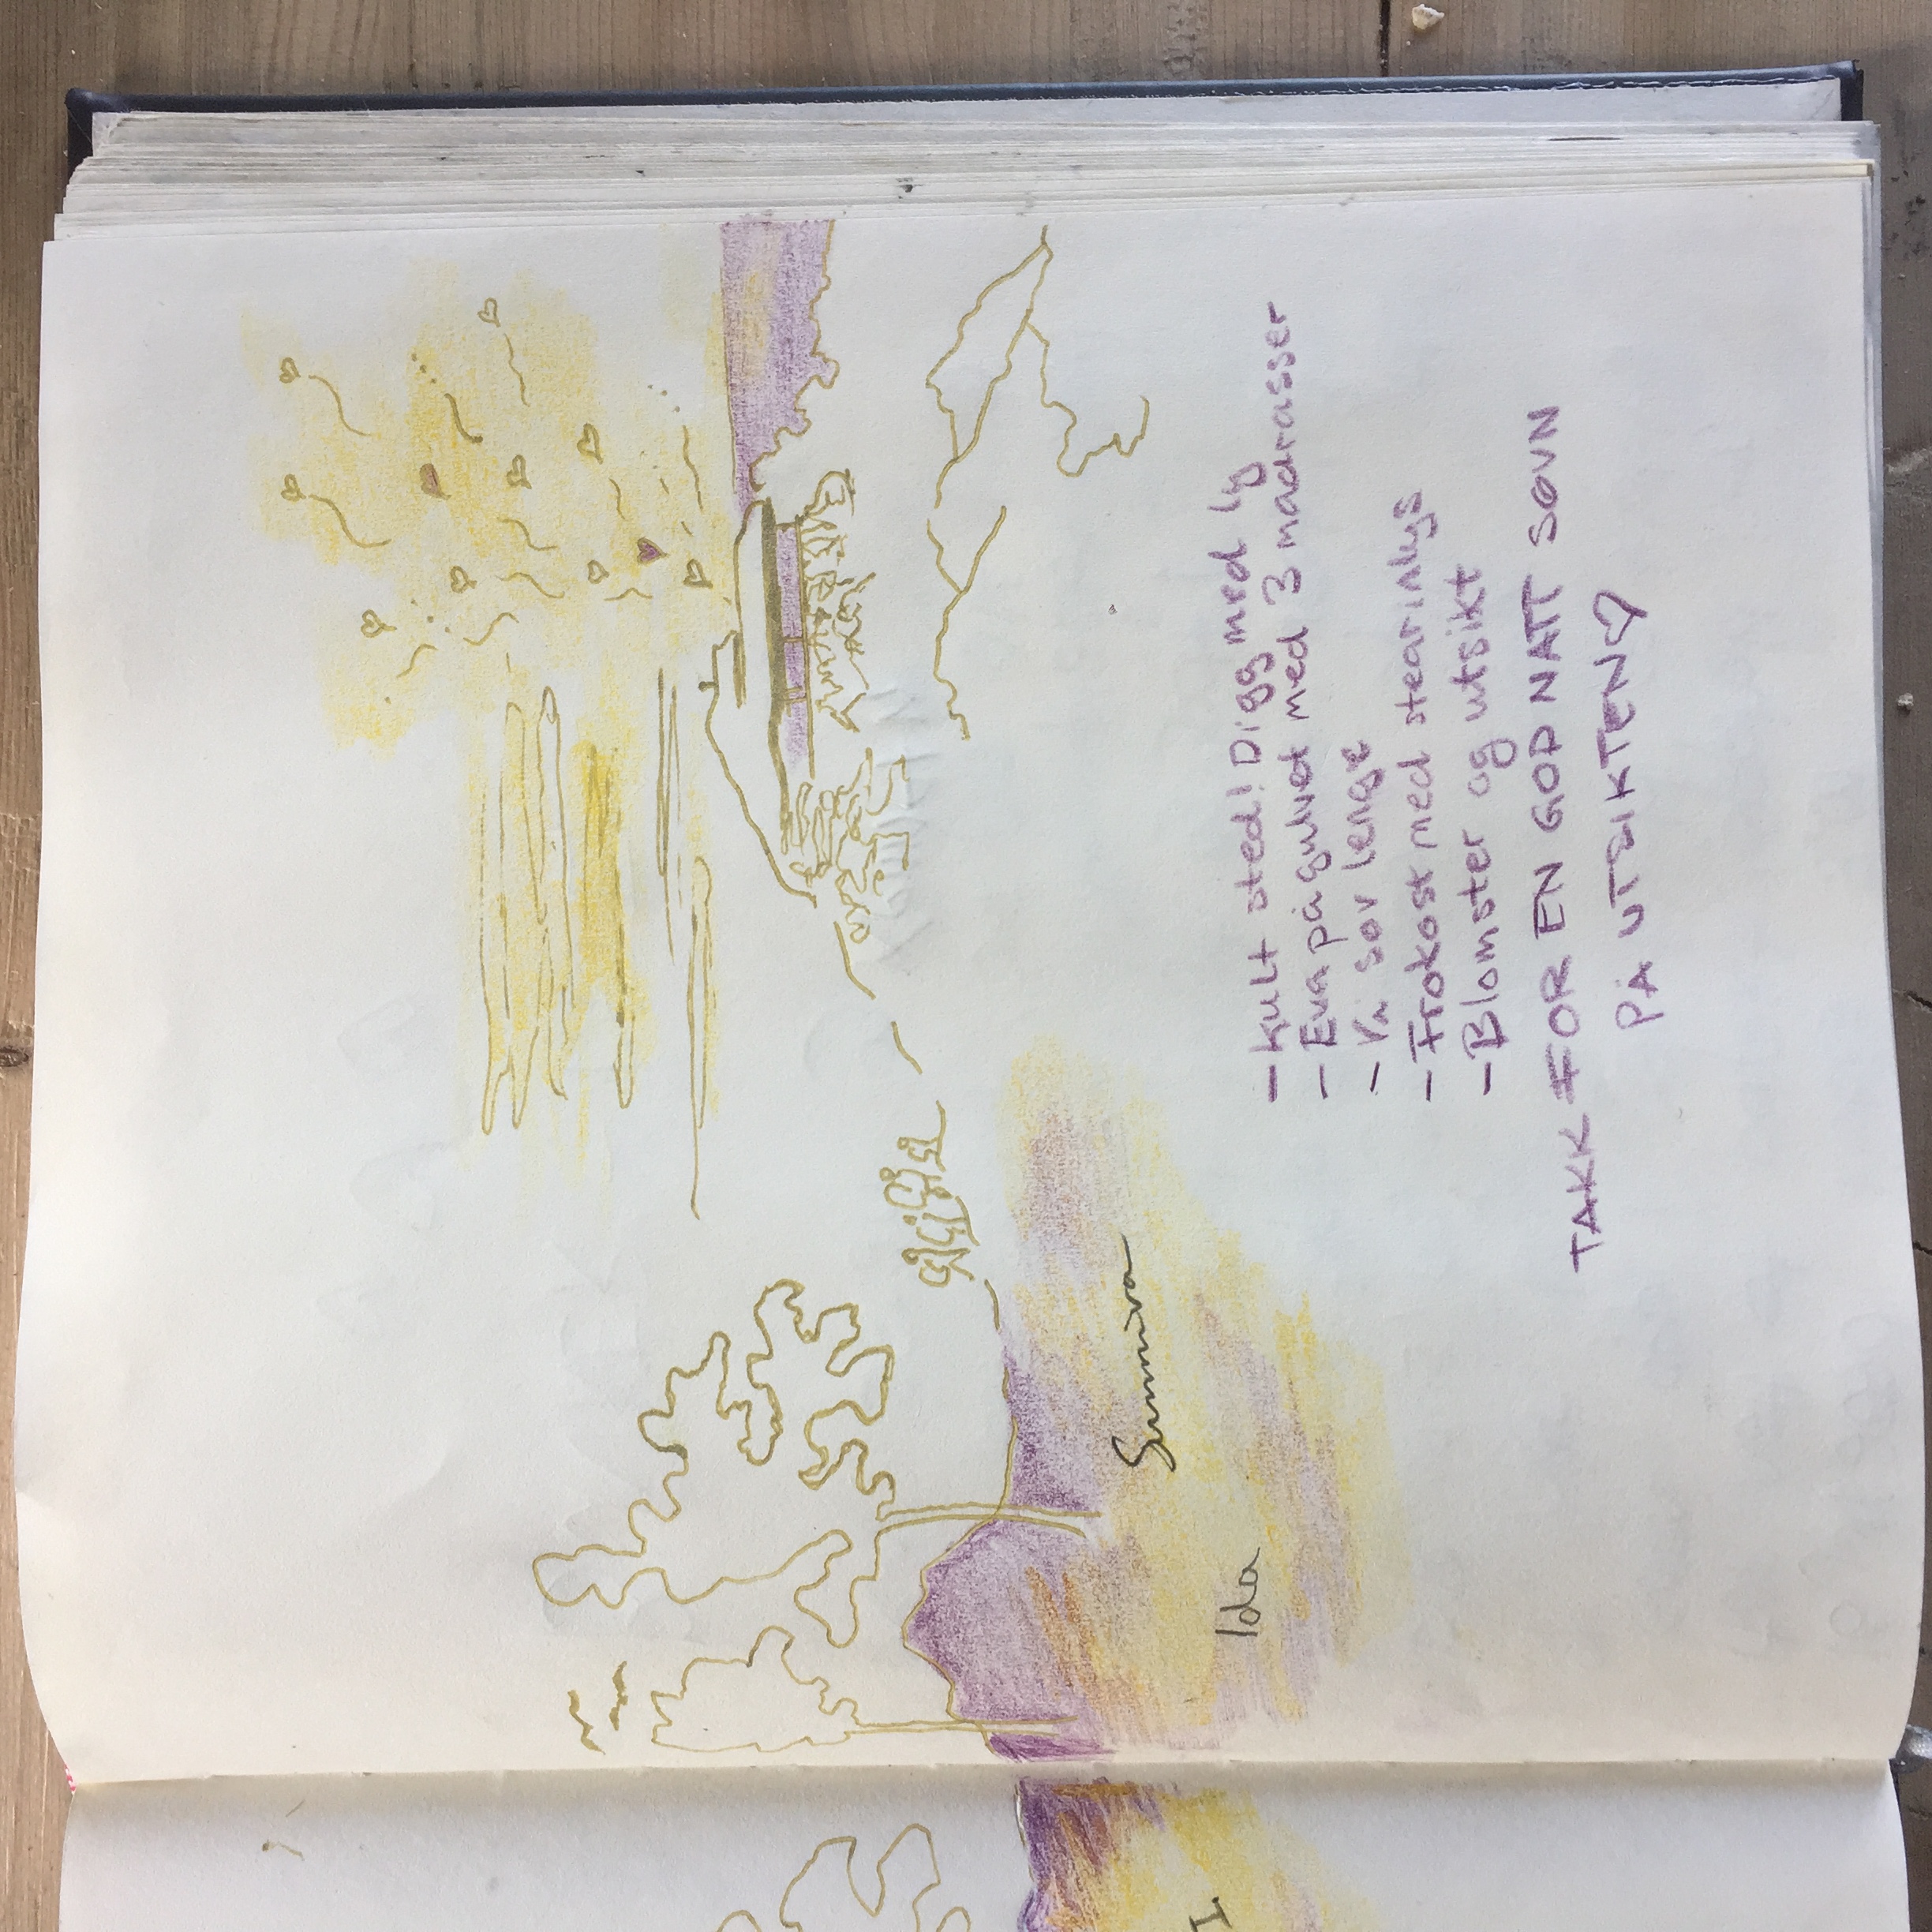 Sunniva
Ida
- Kult sted! Digg med ly
- Eva på gulvet med 3 madrasser
- Vi sov lenge
- Frokost med stearinlys
- Blomster og utsikt
TAKK FOR EN GOD NATT SØVN
PÅ UTSIKTEN♡
I.